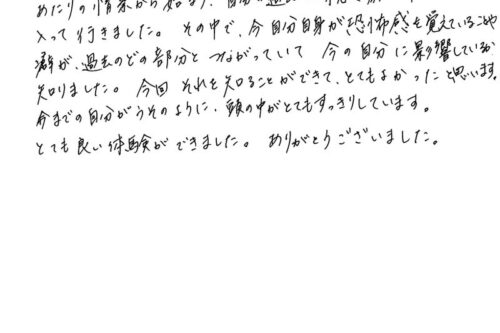 あたりの情景から始まり、自分の
入って行きました。その中で、今自分自身が恐怖感を覚えていることや
癖が、過去のどの部分とつながっていて今の自分に影響しているか
知りました。今回それを知ることができて、とてもよかったと思います。
今までの自分がうそのように、頭の中がとてもすっきりしています。
とても良い体験ができました。ありがとうございました。